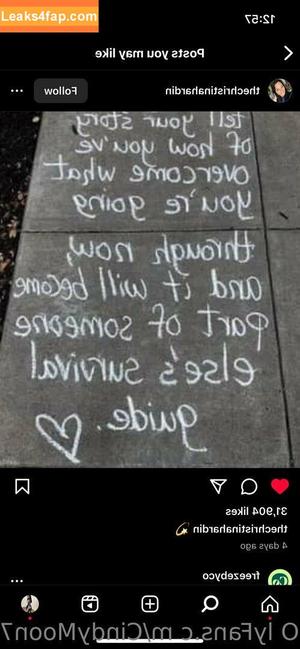 Leaks4fap.com
12:57
Posts you may like
thechristinahardin
Follow
tell your story
of how you've
overcome what
you're going
through now,
and it will become
part of someone
else's survival
guide.
31,904 likes
thechristinahardin
4 days ago
freezebyco
O lyFans.c m/CindyMoon7